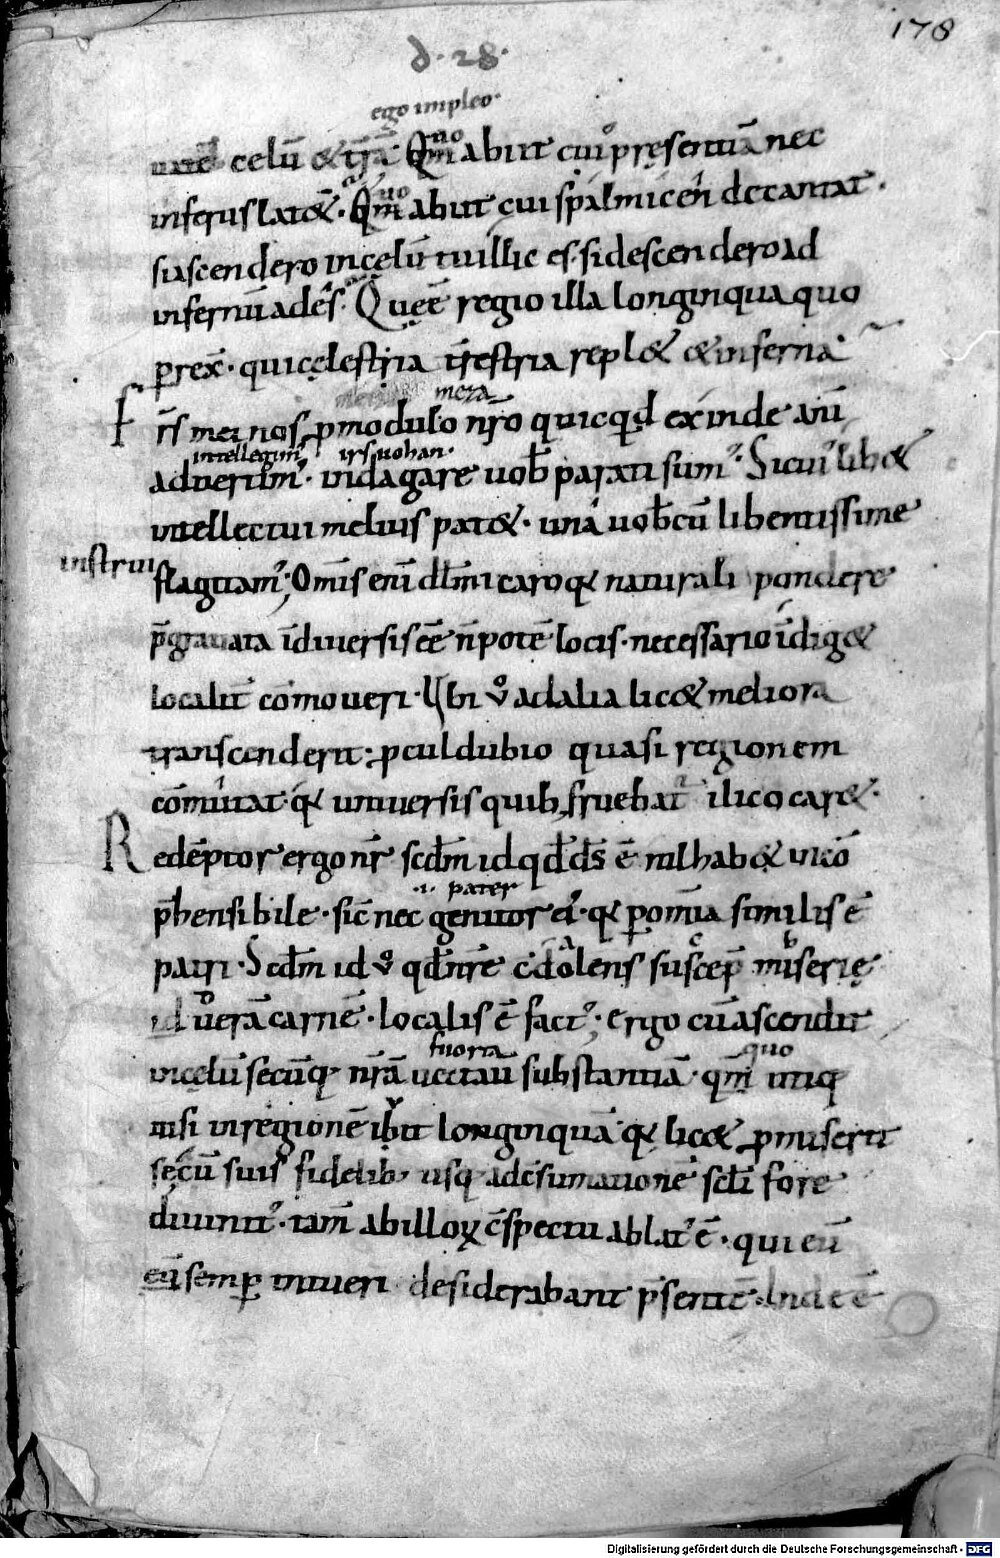 178
d. 28.
ego impleo.
celū & tr̄a Qm̄ abiit cui᷒ pręsentiā nec
inferus lat&. Qm̄ abiit cui spalmicen̄ decantat.
si ascendero in cęlū tu illic es. si descendero ad
infernū ades. Quę ē regio illa longinqua quo
p rex. qui cęlestria t̄restria repl& & inferna
mera
Fr̄s mei nos p modulo nr̄o quicq̄d exinde an̄
intellegim᷒ irsuohan.
aduertim᷒. indagare uob̄ parati sum᷒. Sicui᷒ lib&
intellectui melius pat&. una uob̄cū libentissime
instrui
flagitam᷒; Om̄is eni dl̄mi caro q; naturali pondere
p̄grauata ī diuersis eē n̄ potē locis. necessario īdig&
localit̄ com̄oueri. Ubi v̊ ad alia lic& meliora
transcenderit; p̄culdubio quasi regionem
com̄utat. q; uniuersis quib; fruebat᷒ ilico car&.
Redēptor ergo nr̄ scdm̄ id qđ ds̄ ē nil hab& incō
p̄hensibile. sic̄ nec
.i. pater
genitor ei᷒. q; p om̄ia similis ē
patri. Scdm̄ id v̊ qđ nr̄ę c̄dolens suscep̄ miserię
id uerā carnē. localis ē fact᷒; Ergo cū ascendit
fuora quo
in cęlū secūq; nr̄ā uectau̅ substantiā. qm̄ utiq;
nisi in regionē ibit longinquā. q; lic& p̄miserit
secū suis fidelib; usq; ad c̄sumationē scl̄i fore
diuinit᷒. tam̄ ab illoꝝ c̄spectu ablat᷒ ē. qui eū
eū semp intueri desiderabant p̄sentē. Inde ē
Digitalisierung gefördert durch die Deutsche Forschungsgemeinschaft - DFG